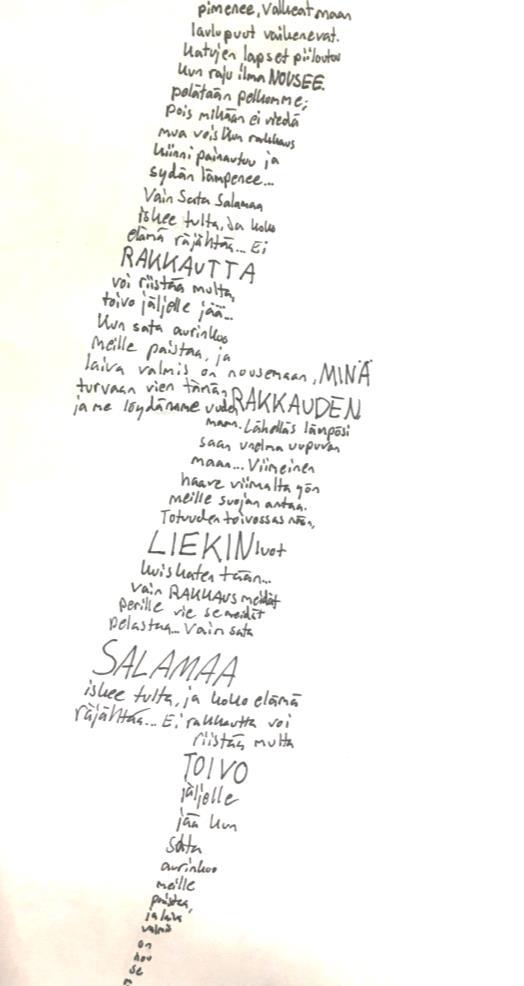 pimenee, valkeat maan
laulupuut vaikenevat.
Katujen lapset piiloutuu
kun raju ilma NOUSEE.
pelätään pelkomme;
pois mikään ei viedä
mua vois kun rakkaus
kiinni painautuu ja
sydän lämpenee...
Vain Sata Salamaa
iskee tulta, ja koko
elämä räjähtää... Ei
RAKKAUTTA
voi riistää multa,
toivo jäljelle jää...
Kun sata aurinkoo
meille paistaa, ja
laiva valmis on nousemaan, MINÄ
turvaan vien tämän RAKKAUDEN
ja me löydämme uuden
maan. Lähelläs lämpösi
saan unelma uupuvan
maan... Viimeinen
haave viimalta yön
meille suojan antaa.
Totuuden toivossas näen,
LIEKIN luot
kuiskaten tään...
vain RAKKAUS meidät
perille vie se meidät
pelastaa... Vain sata
SALAMAA
iskee tulta, ja koko elämä
räjähtää... Ei rakkautta voi
riistää multa
TOIVO
jäljelle
jää kun
sata
aurinkoo
meille
paistaa,
ja laiva
valmis
on
nou
se